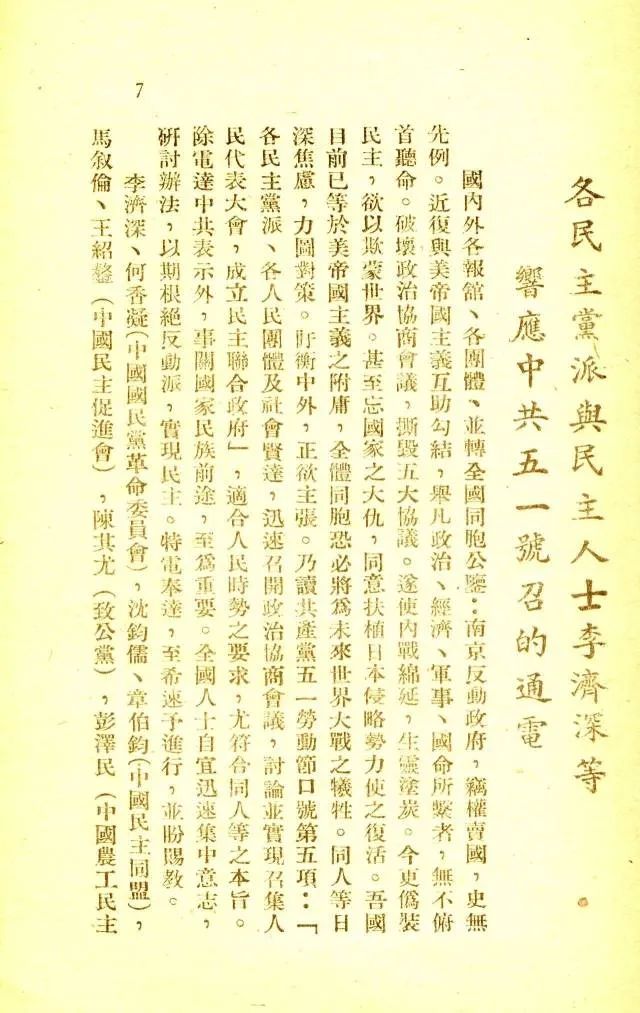 各民主黨派與民主人士李濟深等
響應中共五一號召的通電
國內外各報舘、各團體、並轉全國同胞公鑒：南京反動政府，竊權賣國，史無
先例。近復與美帝國主義互助勾結，舉凡政治、經濟、軍事、國命所繫者，無不俯
首聽命。破壞政治協商會議，撕毀五大協議。遂使內戰綿延，生靈塗炭。今更僞裝
民主，欲以欺蒙世界。甚至忘國家之大仇，同意扶植日本侵略勢力使之復活。吾國
目前已等於美帝國主義之附庸，全體同胞恐必將爲未來世界大戰之犧牲。同人等日
深焦慮，力圖對策。盱衡中外，正欲主張。乃讀共產黨五一勞動節口號第五項：「
各民主黨派、各人民團體及社會賢達，迅速召開政治協商會議，討論並實現召集人
民代表大會，成立民主聯合政府」，適合人民時勢之要求，尤符合同人等之本旨。
除電達中共表示外，事關國家民族前途，至爲重要。全國人士自宜迅速集中意志，
研討辦法，以期根絕反動派，實現民主。特電奉達，至希速予進行，並盼賜教。
李濟深、何香凝(中國國民黨革命委員會)，沈鈞儒、章伯鈞(中國民主同盟)，
馬叙倫、王紹鏊（中國民主促進會），陳其尤（致公黨），彭澤民（中國農工民主
7